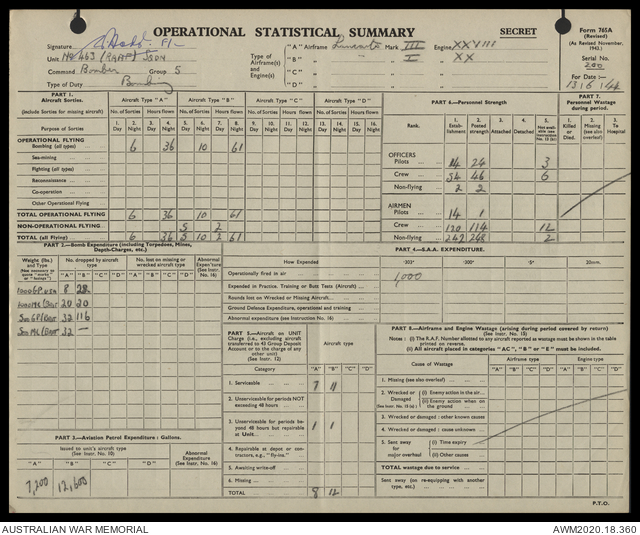 OPERATIONAL STATISTICAL SUMMARY
SECRET
Form 765A
(Revised)
(As Revised November, 1943.)
Serial No.
200
For Date :—
13 6 44
Signature
Unit No 463 (RAAF) Sqdn
Command Bomber Group 5
Type of Duty Bombing
Type of Airframe(s) and Engine(s) :
"A" Airframe Lancaster Mark III Engine XXVIII
"B" " I " XX
"C"
"D"
PART 1.
Aircraft Sorties.
(include Sorties for missing aircraft)
Aircraft Type "A" Aircraft Type "B" Aircraft Type "C" Aircraft Type "D"
No. of Sorties Hours flown No. of Sorties Hours flown No. of Sorties Hours flown No. of Sorties Hours flown
Purpose of Sorties
1. Day 2. Night 3. Day 4. Night 5. Day 6. Night 7. Day 8. Night 9. Day 10. Night 11. Day 12. Night 13. Day 14. Night 15. Day 16. Night
OPERATIONAL FLYING
Bombing (all types) 6 36 10 61
Sea-mining
Fighting (all types)
Reconnaissance
Co-operation
Other Operational Flying
TOTAL OPERATIONAL FLYING 6 36 10 61
NON-OPERATIONAL FLYING 5 2
TOTAL (all Flying) 6 36 5 10 2 61
PART 6.—Personnel Strength
Rank.
1. Establishment 2. Posted strength 3. Attached 4. Detached
OFFICERS
Pilots 14 24 3
Crew 54 46 6
Non-flying 2 2
AIRMEN
Pilots 14 1
Crew 120 114 12
Non-flying 247 248 2
PART 7.
Personnel Wastage during period.
1. Killed or Died. 2. Missing (see also overleaf) 3. To Hospital
PART 2.—Bomb Expenditure (including Torpedoes, Mines, Depth-Charges, etc.)
Weight (lbs.) and Type
No. dropped by aircraft type
No. lost on missing or wrecked aircraft type
Abnormal Expen'ture (See Instr. No. 16)
"A" "B" "C" "D" "A" "B" "C" "D"
1000 GP USA 8 28
20 20
32 116
32 —
PART 3.—Aviation Petrol Expenditure : Gallons.
Issued to unit's aircraft type
(See Instr. No. 10)
Abnormal Expenditure
(See Instr. No. 16)
"A" "B" "C" "D"
7,200 12,600
PART 4.—S.A.A. EXPENDITURE.
How Expended ·303" ·300" ·5" 20mm.
Operationally fired in air 1,000
Expended in Practice, Training or Butt Tests (Aircraft)
Rounds lost on Wrecked or Missing Aircraft
Ground Defence Expenditure, operational and training
Abnormal expenditure (see Instruction No. 16)
PART 5.—Aircraft on UNIT Charge (i.e., excluding aircraft transferred to 43 Group Deposit Account or to the charge of any other unit)
(See Instr. 12)
Aircraft type
Category "A" "B" "C" "D"
1. Serviceable 7 11
2. Unserviceable for periods NOT exceeding 48 hours
3. Unserviceable for periods beyond 48 hours but repairable at Unit 1 1
4. Repairable at depot or contractors, e.g., "fly-ins."
5. Awaiting write-off
6. Missing
TOTAL 8 12
PART 8.—Airframe and Engine Wastage (arising during period covered by return)
(See Instr. No. 15)
Notes : (i) The R.A.F. Number allotted to any aircraft reported as wastage must be shown in the table printed on reverse.
(ii) All aircraft placed in categories "AC", "B" or "E" must be included.
Cause of Wastage
Airframe type Engine type
"A" "B" "C" "D" "A" "B" "C" "D"
1. Missing (see also overleaf)
2. Wrecked or Damaged (i) Enemy action in the air
(ii) Enemy action when on the ground
3. Wrecked or damaged : other known causes
4. Wrecked or damaged : cause unknown
5. Sent away for major overhaul (i) Time expiry
(ii) Other causes
TOTAL wastage due to service
Sent away (on re-equipping with another type, etc.)
P.T.O.
AUSTRALIAN WAR MEMORIAL AWM2020.18.360